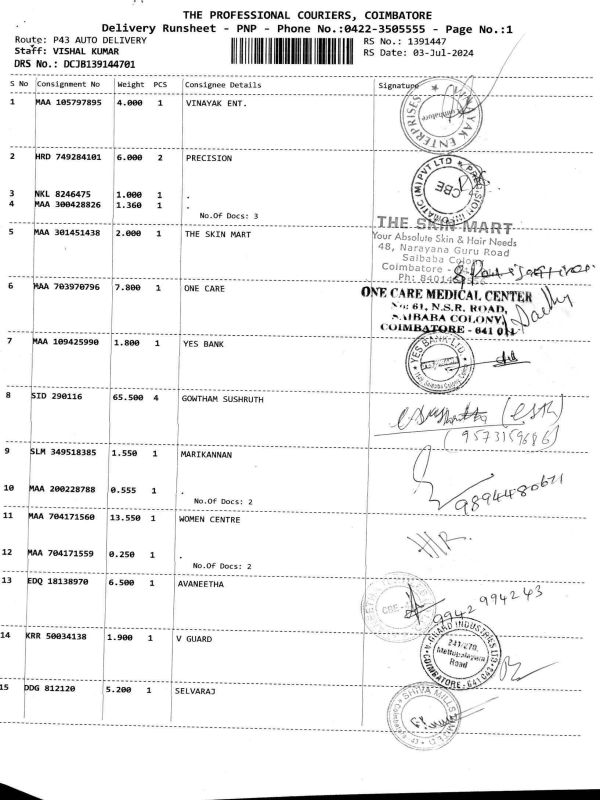 THE PROFESSIONAL COURIERS, COIMBATORE
Delivery Runsheet - PNP - Phone No.:0422-3505555 - Page No.:1
Route: P43 AUTO DELIVERY
Staff: VISHAL KUMAR
DRS No.: DCJB139144701
RS No.: 1391447
RS Date: 03-Jul-2024
S No Consignment No Weight PCS Consignee Details Signature
1 MAA 105797895 4.000 1 VINAYAK ENT.
VINAYAK ENTERPRISES
Coimbatore
2 HRD 749284101 6.000 2 PRECISION
CBE
3 NKL 8246475 1.000 1 .
4 MAA 300428826 1.360 1 .
No.Of Docs: 3
5 MAA 301451438 2.000 1 THE SKIN MART
THE SKIN MART
Your Absolute Skin & Hair Needs
48, Narayana Guru Road
Saibaba Colony
Coimbatore -
Ph:
6 MAA 703970796 7.800 1 ONE CARE
ONE CARE MEDICAL CENTER
No: 61, N.S.R. ROAD,
SAIBABA COLONY,
COIMBATORE - 641 011
7 MAA 109425990 1.800 1 YES BANK
YES BANK LTD
8 SID 290116 65.500 4 GOWTHAM SUSHRUTH
(9573159686)
9 SLM 349518385 1.550 1 MARIKANNAN
10 MAA 200228788 0.555 1 .
No.Of Docs: 2
9894480671
11 MAA 704171560 13.550 1 WOMEN CENTRE
12 MAA 704171559 0.250 1 .
No.Of Docs: 2
13 EDQ 18138970 6.500 1 AVANEETHA
CBE
9942 994243
14 KRR 50034138 1.900 1 V GUARD
V-GUARD INDUSTRIES LTD
Mettupalayam
Road
COIMBATORE - 641 043
15 DDG 812120 5.200 1 SELVARAJ
SHIVA MILLS